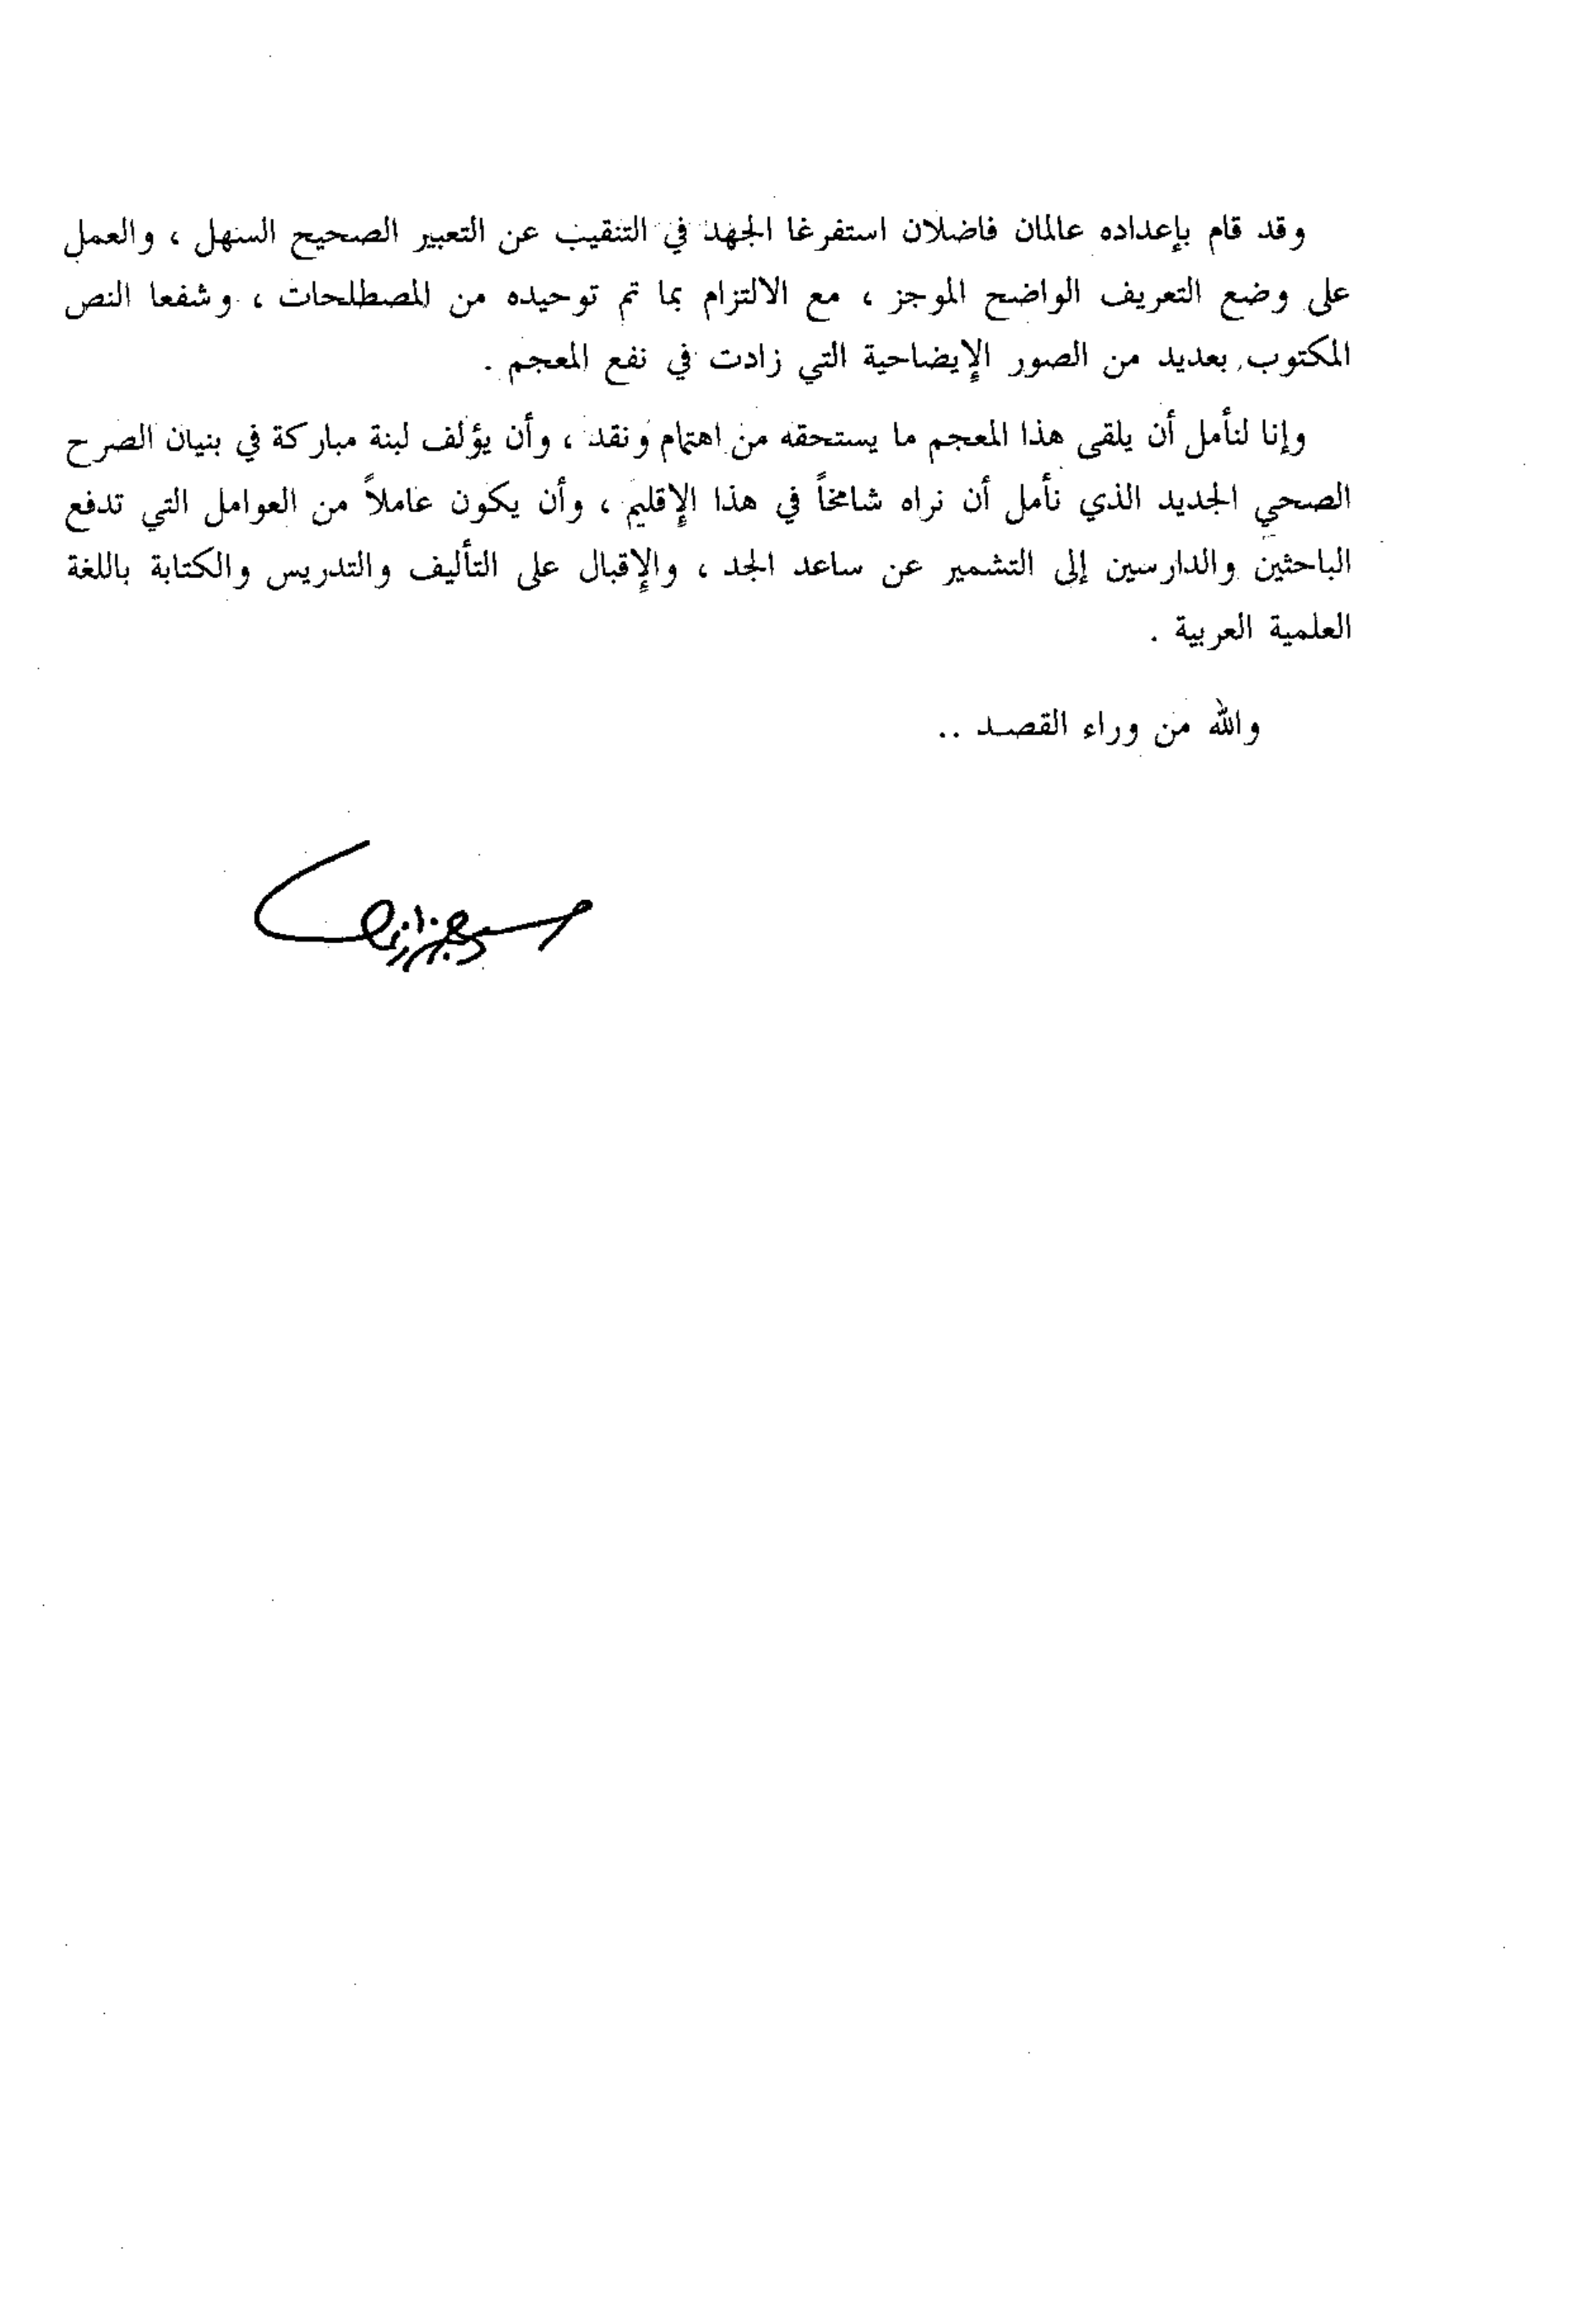 وقد قام بإعداده عالمان فاضلان استفرغا الجهد في التنقيب عن التعبير الصحيح السهل ، والعمل
على وضع التعريف الواضح الموجز ، مع الالتزام بما تم توحيده من المصطلحات ، وشفعا النص
المكتوب بعديد من الصور الإيضاحية التي زادت في نفع المعجم .
وإنا لنأمل أن يلقى هذا المعجم ما يستحقه من اهتمام ونقد ، وأن يؤلف لبنة مباركة في بنيان الصرح
الصحي الجديد الذي نأمل أن نراه شامخاً في هذا الإقليم ، وأن يكون عاملاً من العوامل التي تدفع
الباحثين والدارسين إلى التشمير عن ساعد الجد ، والإقبال على التأليف والتدريس والكتابة باللغة
العلمية العربية .
والله من وراء القصد ..